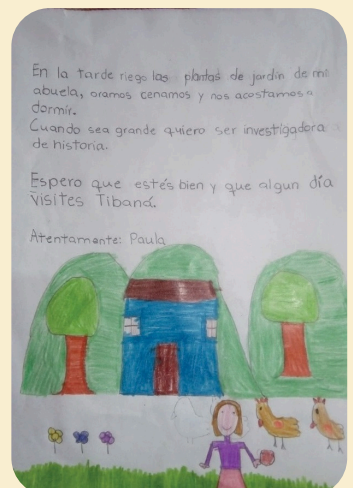 En la tarde riego las plantas de jardín de mi
abuela, oramos cenamos y nos acostamos a
dormir.
Cuando sea grande quiero ser investigadora
de historia.
Espero que estés bien y que algun día
visites Tibaná.
Atentamente: Paula